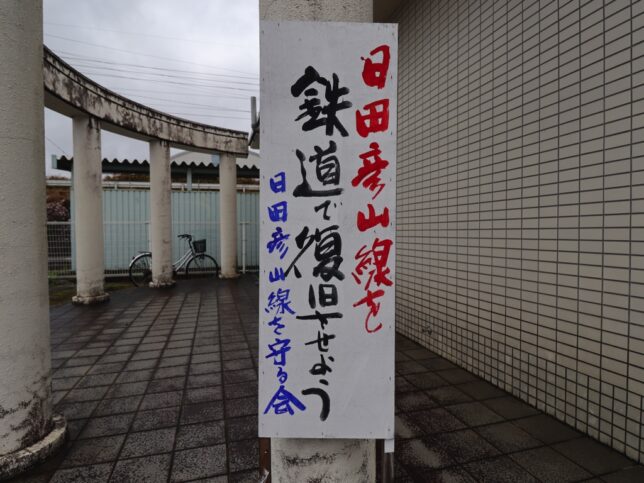 日田彦山線を
鉄道で復旧させよう
日田彦山線を守る会